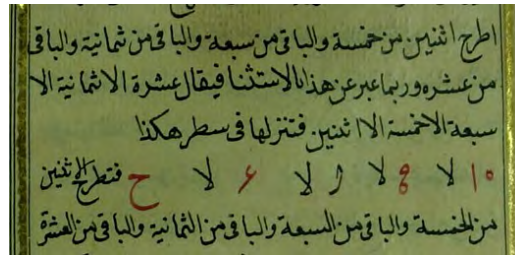 اطرح اثنين من خمسة والباقى من سبعة والباقى من ثمانية والباقى
من عشره وربما عبر عن هذا بالاستثنا فيقال عشرة الا ثمانية الا
سبعة الاخمسة الا اثنين فتنزلها فى سطر هكذا
لا لا لا لا فتطرح الاثنين
من الخمسة والباقى من السبعة والباقى من الثمانية والباقى من العشرة